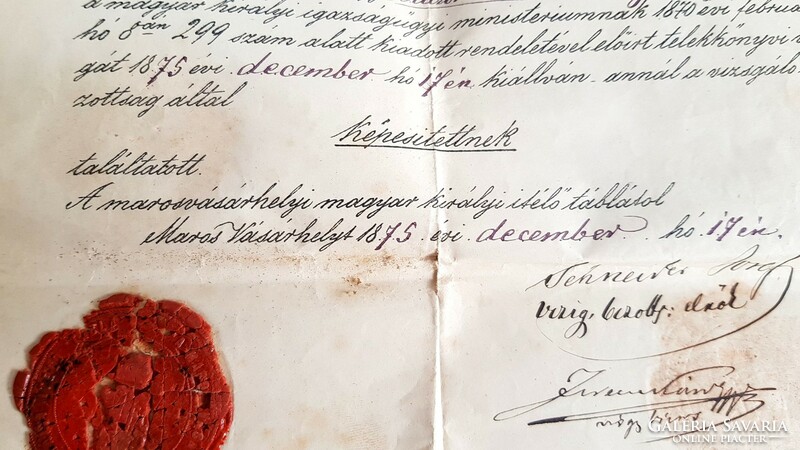 a magyar királyi igazságügyi ministeriumnak 1870 évi februá
hó 8án 299 szám alatt kiadott rendeletével előirt telekkönyvi v
gát 1875 évi december hó 17én kiállván annál a vizsgáló
zottság által
Képesitettnek
találtatott.
A marosvásárhelyi magyar királyi itélő táblától
Maros Vásárhelyt 1875. évi december hó 17én.
Schneider
vizsg. bizotts: elnök
GALERIA SAVARIA
ONLINE PIACTÉR